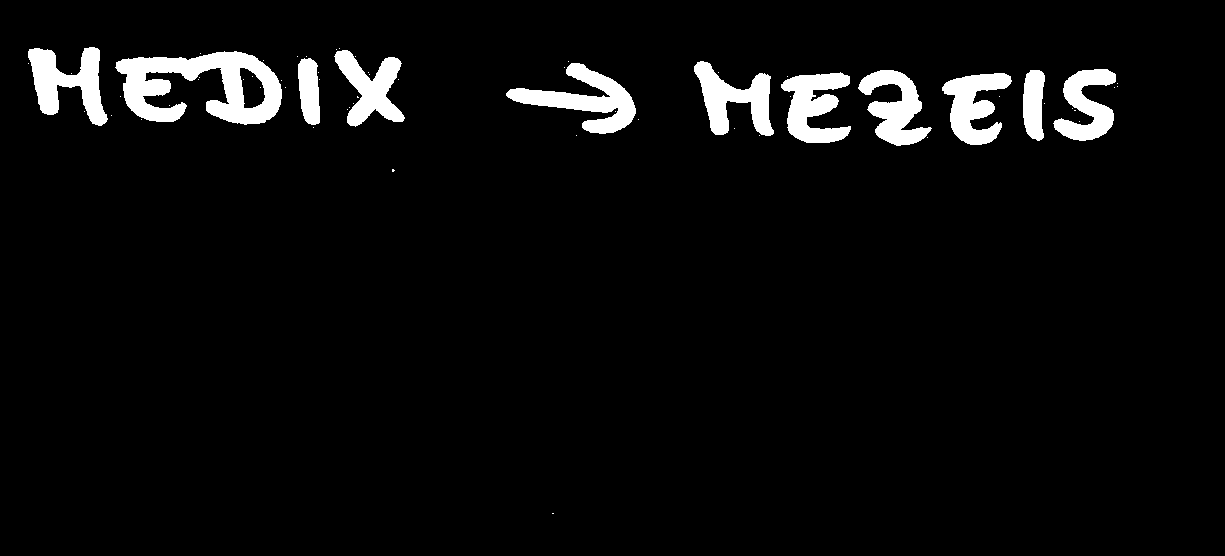 MEDIX → MEZEIS